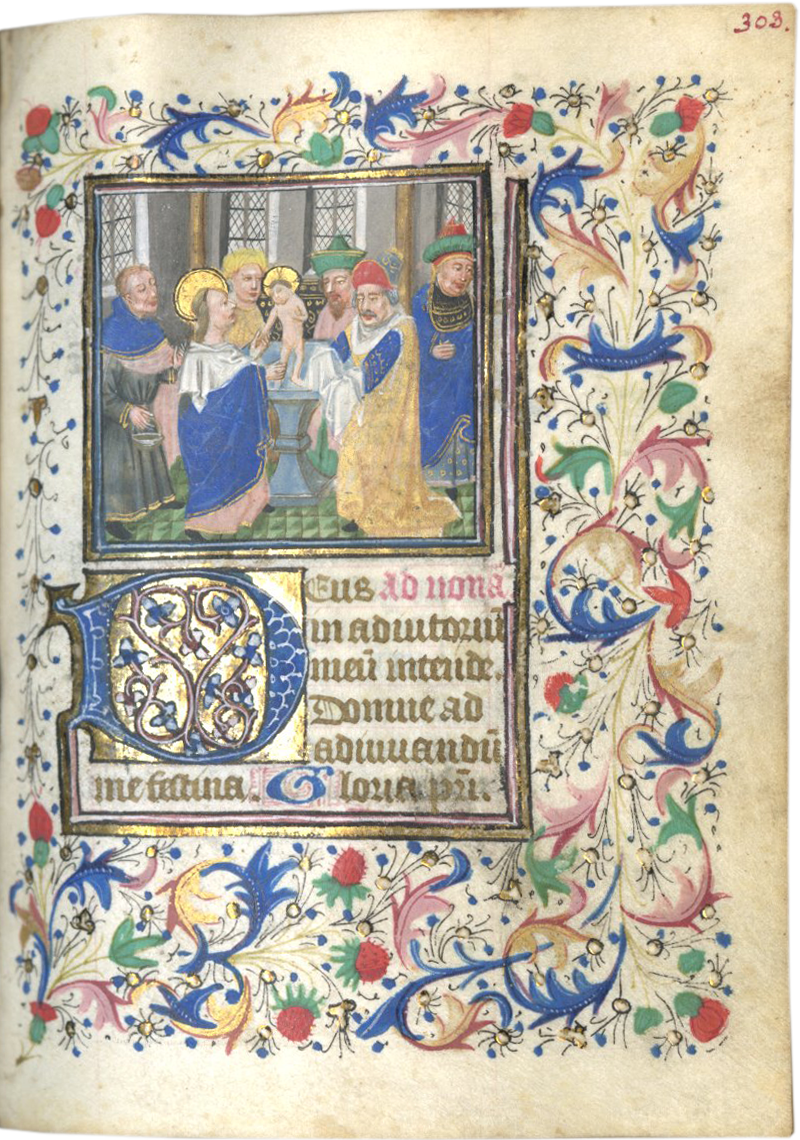 308.
Deus ad nonā
in adiutoriū
meū intende.
Domine ad
adiuuandū
me festina. Gloria pr̄i.